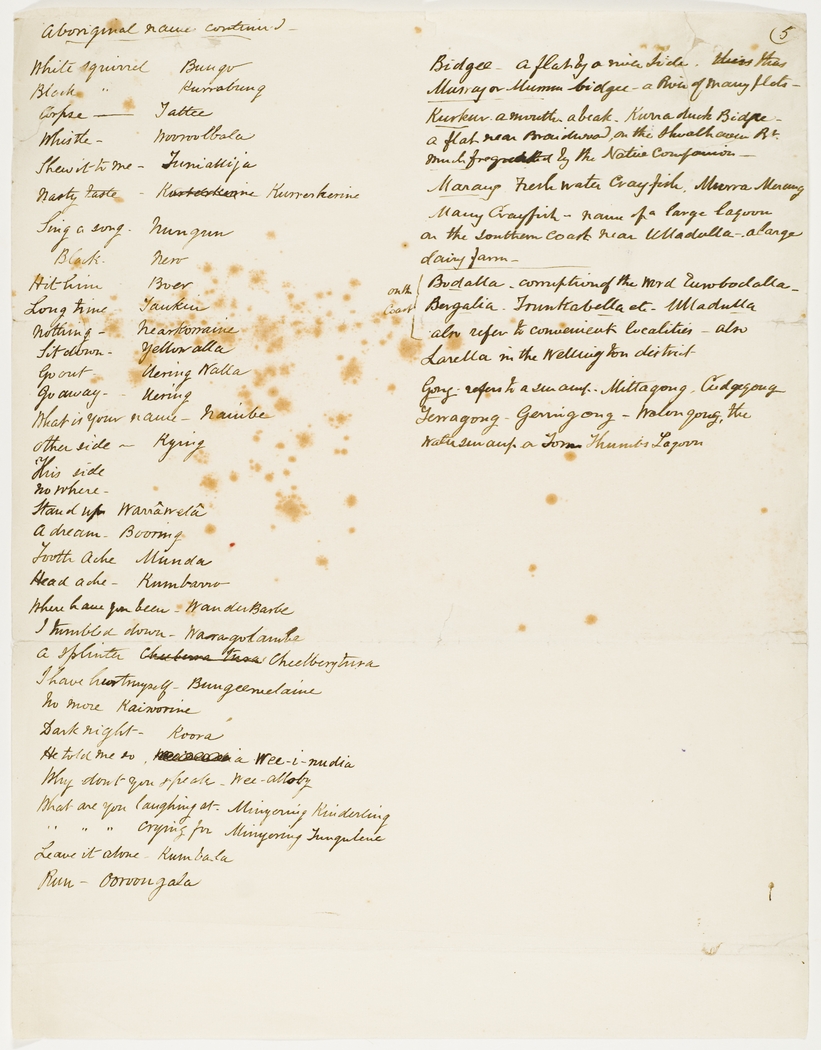 Aboriginal name continued -
(5
White squirrel Bungo
Black " Kurrabung
Corpse —— Tattee
Whistle - Wooroolbala
Shew it to me - Tuniattija
Nasty taste - Kurrerkerine
Sing a song - Nungun
Black - Nero
Hit him Boer
Long time Taukin
Nothing - Nearkorraine
Sit down - Yellowalla
Go out - Uering Walla
Go away - Uering
What is your name - Naimbe
Other side - Kying
This side
No where -
Stand up Warrâwelâ
A dream - Booring
Tooth Ache Munda
Head ache - Kumbarro
Where have you been - WanderBarbe
I tumbled down - Waragolambe
A splinter Cheelbergtura
I have hurt myself - Bungeemelaine
No more Kaiworine
Dark night - Koora
He told me so, Wee-i-nudia
Why don't you speak - Wee-alloby
What are you laughing at - Minyoring Kinderling
" " " crying for Minyoring Tungulene
Leave it alone - Kumbala
Run - Ooroongala
Bidgee - a flat by a river side - thus
Murray or Murrum bidgee - a River of many flats -
Kurkur a mouth a beak - Kurraduck Bidgee -
a flat near Braidwood, on the Shoalhaven Rr.
much frequented by the Native Companion —
Marang Fresh water Crayfish, Murra Merang
Many Crayfish - name of a large lagoon
on the Southern Coast near Ulladulla - a large
dairy farm -
on the Coast
Bodalla - corruption of the word Eurobodalla -
Bergalia - Trunkabella etc - Ulladulla
also refer to convenient localities - also
Larella in the Wellington district
Gong - refers to a swamp - Mittagong, Cudgegong
Terragong - Gerringong - Wolongong, the
Water swamp or Tom Thumbs Lagoon